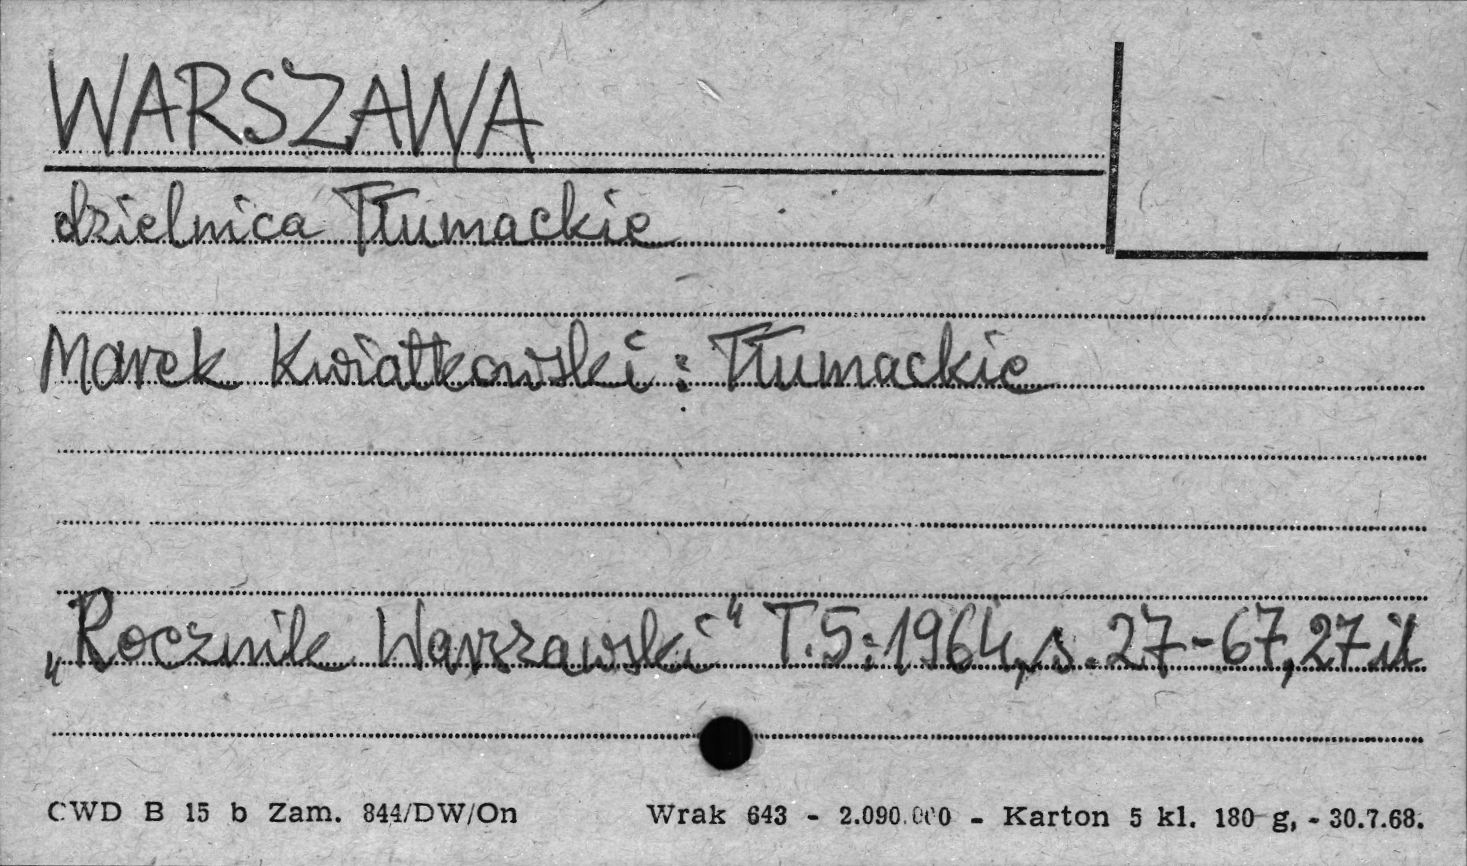 WARSZAWA
dzielnica Tłumackie
Marek Kwiatkowski: Tłumackie
„Rocznik Warszawski" T.5:1964, s. 27-67, 27 il
CWD B 15 b Zam. 844/DW/On Wrak 643 - 2.090.000 - Karton 5 kl. 180 g, - 30.7.68.